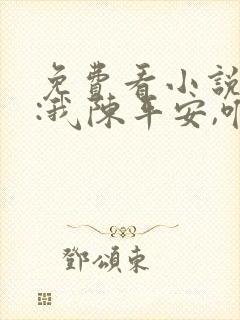 免費看小說
:我陳平安,
鄧頌東